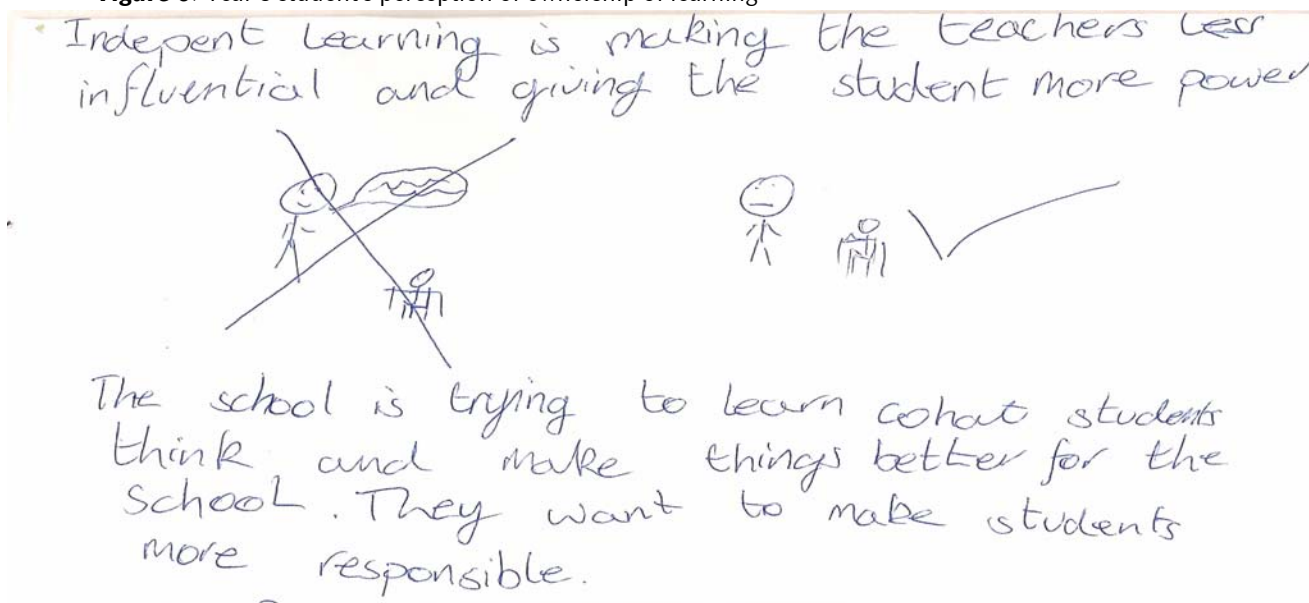 Indepent Learning is making the teachers less
influential and giving the student more power
The school is trying to learn what students
think, and make things better for the
school. They want to make students
more responsible.